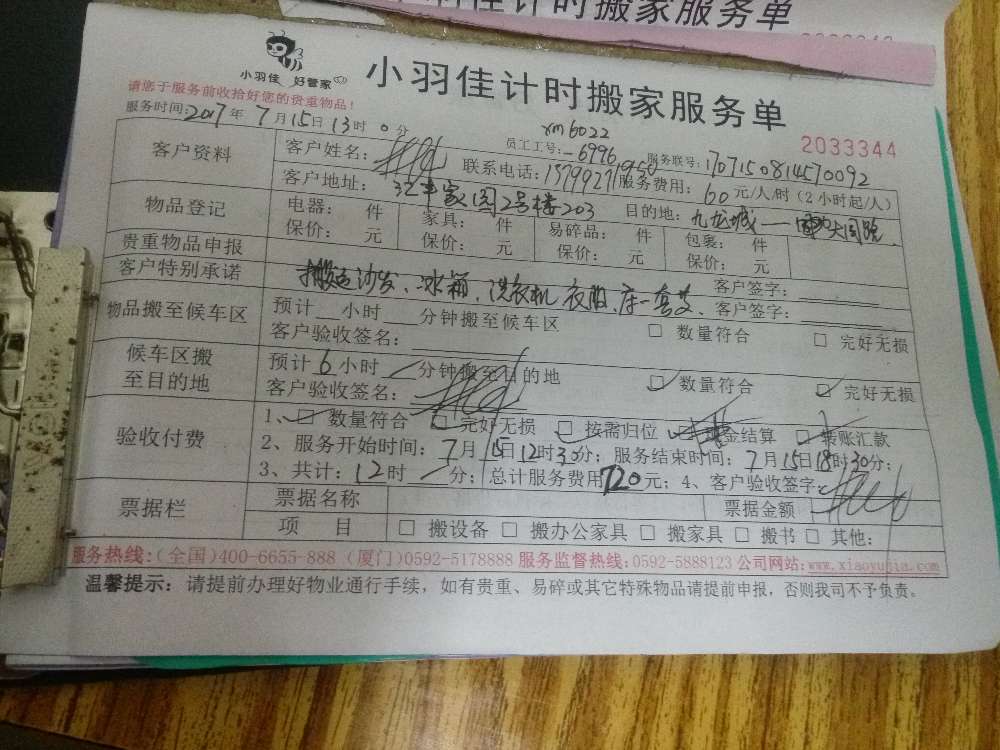 佳计时搬家服务单
小羽佳 好管家
小羽佳计时搬家服务单
请您于服务前收拾好您的贵重物品！
2033344
服务时间: 2017年 7月15日13时0分 员工工号: xm6022 -6996 服务联号: 170715081457 0092
客户资料 客户姓名: 联系电话: 服务费用: 60元/人/时（2小时起/人）
客户地址: 家园2号楼203 目的地: 九龙城
物品登记 电器: 件 家具: 件 易碎品: 件 包裹: 件
贵重物品申报 保价: 元 保价: 元 保价: 元 保价: 元
客户特别承诺 搬运沙发、冰箱、洗衣机 衣服、床一套 客户签字:
客户签字:
物品搬至候车区 预计 小时 分钟搬至候车区 □ 数量符合 □ 完好无损
客户验收签名:
候车区搬至目的地 预计6小时 分钟搬至目的地 ☑ 数量符合 ☑ 完好无损
客户验收签名:
验收付费 1、☑ 数量符合 ☑ 完好无损 ☑ 按需归位 ☑ 现金结算 ☑ 转账汇款
2、服务开始时间: 7月15日12时30分; 服务结束时间: 7月15日18时30分;
3、共计: 12时 分; 总计服务费用720元; 4、客户验收签字:
票据栏 票据名称 票据金额
项 目 □ 搬设备 □ 搬办公家具 □ 搬家具 □ 搬书 □ 其他:
服务热线:(全国)400-6655-888 (厦门)0592-5178888 服务监督热线:0592-5888123 公司网站:www.xiaoyujia.com
温馨提示: 请提前办理好物业通行手续，如有贵重、易碎或其它特殊物品请提前申报，否则我司不予负责。